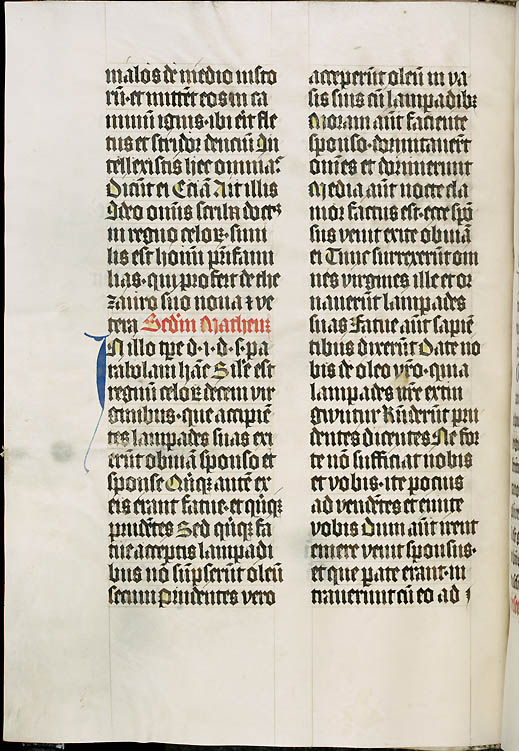 malos de medio iusto
rū·et mittēt eos in ca
minū ignis·ibi erit fle
tus et stridor dencium In
tellexistis hec omnia?
Dicūt ei Eciā Ait illis
Ideo omnis scriba doct9
in regno celoꝝ·simi
lis est homini pr̄i fami
lias·qui profert de the
zauro suo noua ⁊ ve
tera Sedm̄ Matheuꝫ
IN illo tp̄e·d·i·d·s·pa
rabolam hāc Sil'e est
regnū celoꝝ decem vir
ginibus·que accipiē
tes lampades suas exi
erūt obuiā sponso et
sponse Quīqꝫ autē ex
eis erant fatue·et quīqꝫ
prudētes Sed quīqꝫ fa
tue acceptis lampadi
bus nō sūpserūt oleū
secum Prudentes vero
acceperūt oleū in va
sis suis cū lampadibꝫ
Moram aūt faciente
sponso·dormitauerūt
om̄es et dormierunt
Media aūt nocte cla
mor factus est·ecce spō
sus venit exite obuiā
ei Tunc surrexerūt om
nes virgines ille et or
nauerūt lampades
suas Fatue aūt sapiē
tibus dixerūt Date no
bis de oleo vr̄o·quia
lampades nr̄e extin
guuntur Rn̄derūt pru
dentes dicentes Ne for
te nō sufficiat nobis
et vobis·ite pocius
ad vendētes et emite
vobis Dum aūt irent
emere venit sponsus·
et que p̄ate erant·in
trauerunt cū eo ad